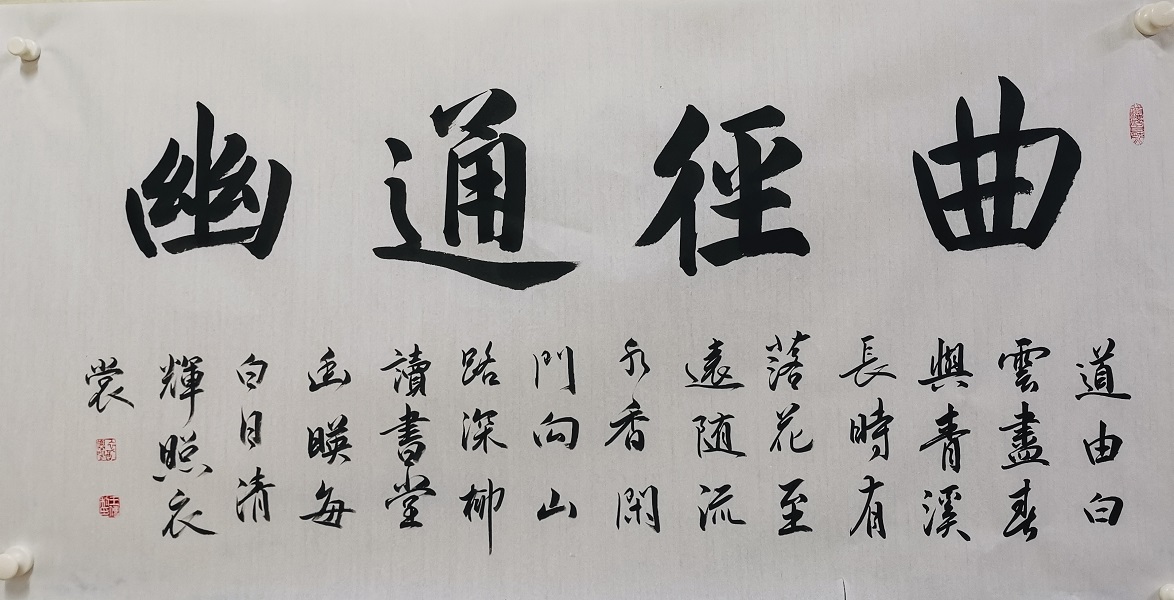 曲徑通幽
道由白
雲盡春
與青溪
長時有
落花至
遠随流
水香閑
門向山
路深柳
讀書堂
幽暎每
白日清
輝照衣
裳